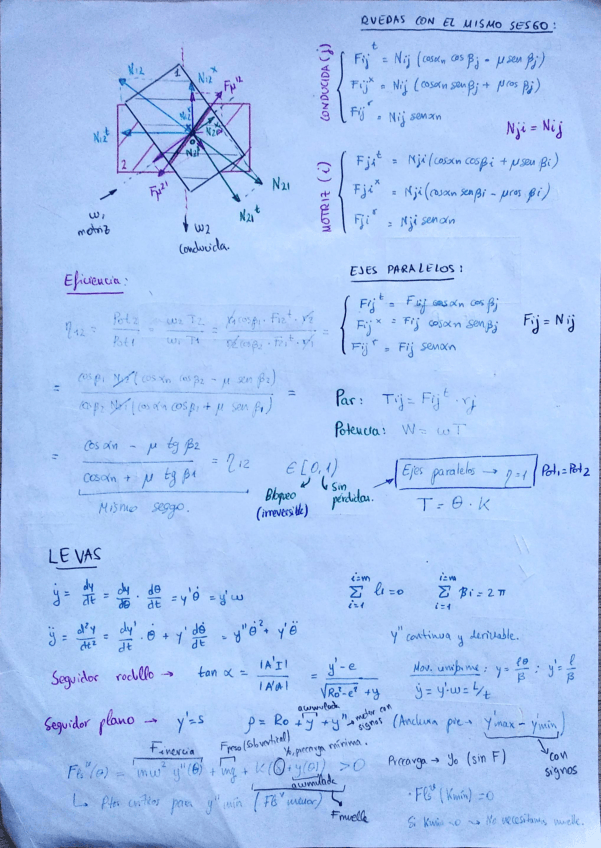 RUEDAS CON EL MISMO SESGO:
CONDUCIDA (j)
Fij^t = Nij (cosαn cosβj - μ senβj)
Fij^x = Nij (cosαn senβj + μ cosβj)
Fij^r = Nij senαn
Nji = Nij
MOTRIZ (i)
Fji^t = Nji (cosαn cosβi + μ senβi)
Fji^x = Nji (cosαn senβi - μ cosβi)
Fji^r = Nji senαn
N12
1
N12^x
Fμ12
N12^t
N12^r
2
Fμ21
N21
N21^t
ω1
motriz
ω2
conducida.
Eficiencia:
η12 = Pot2/Pot1 = ω2 T2/ω1 T1 = r1 cosβ1 · F12^t · r2/r2 cosβ2 · F21^t · r1 =
= cosβ1 N12 (cosαn cosβ2 - μ senβ2)/cosβ2 N21 (cosαn cosβ1 + μ senβ1) =
= cosαn - μ tgβ2/cosαn + μ tgβ1 = η12
Mismo sesgo.
∈ [0,1)
Bloqueo (irreversible)
Sin pérdidas.
EJES PARALELOS:
Fij^t = Fij cosαn cosβj
Fij^x = Fij cosαn senβj
Fij^r = Fij senαn
Fij = Nij
Par: Tij = Fij^t · rj
Potencia: W = ωT
Ejes paralelos → η=1
Pot1=Pot2
T = θ · K
LEVAS
ẏ = dy/dt = dy/dθ · dθ/dt = y'θ̇ = y'ω
ÿ = d²y/dt² = dy'/dt · θ̇ + y' dθ̇/dt = y''θ̇² + y'θ̈
Σ(i=1, i=m) li=0
Σ(i=1, i=m) βi = 2π
y'' continua y derivable.
Seguidor rodillo → tan α = |A'I'|/|A'A| = y' - e/√(Ro² - e²) + y
Mov. uniforme: y = lθ/β ; y' = l/β
ẏ = y'·ω = L/t
Seguidor plano → y' = s
ρ = Ro + y + y'' → meter con signos
acumulada
(Anchura pie → y'max - y'min)
con signos
F inercia
Fpeso (Sólo vertical)
yo, precarga mínima.
FB^v(θ) = mω² y''(θ) + mg + K(yo + y(θ)) > 0
acumulada
F muelle
↳ Ptos críticos para y'' min (FB^v menor)
Precarga → yo (sin F)
· FB^v (Kmin) = 0
Si Kmin < 0 → No necesitamos muelle.